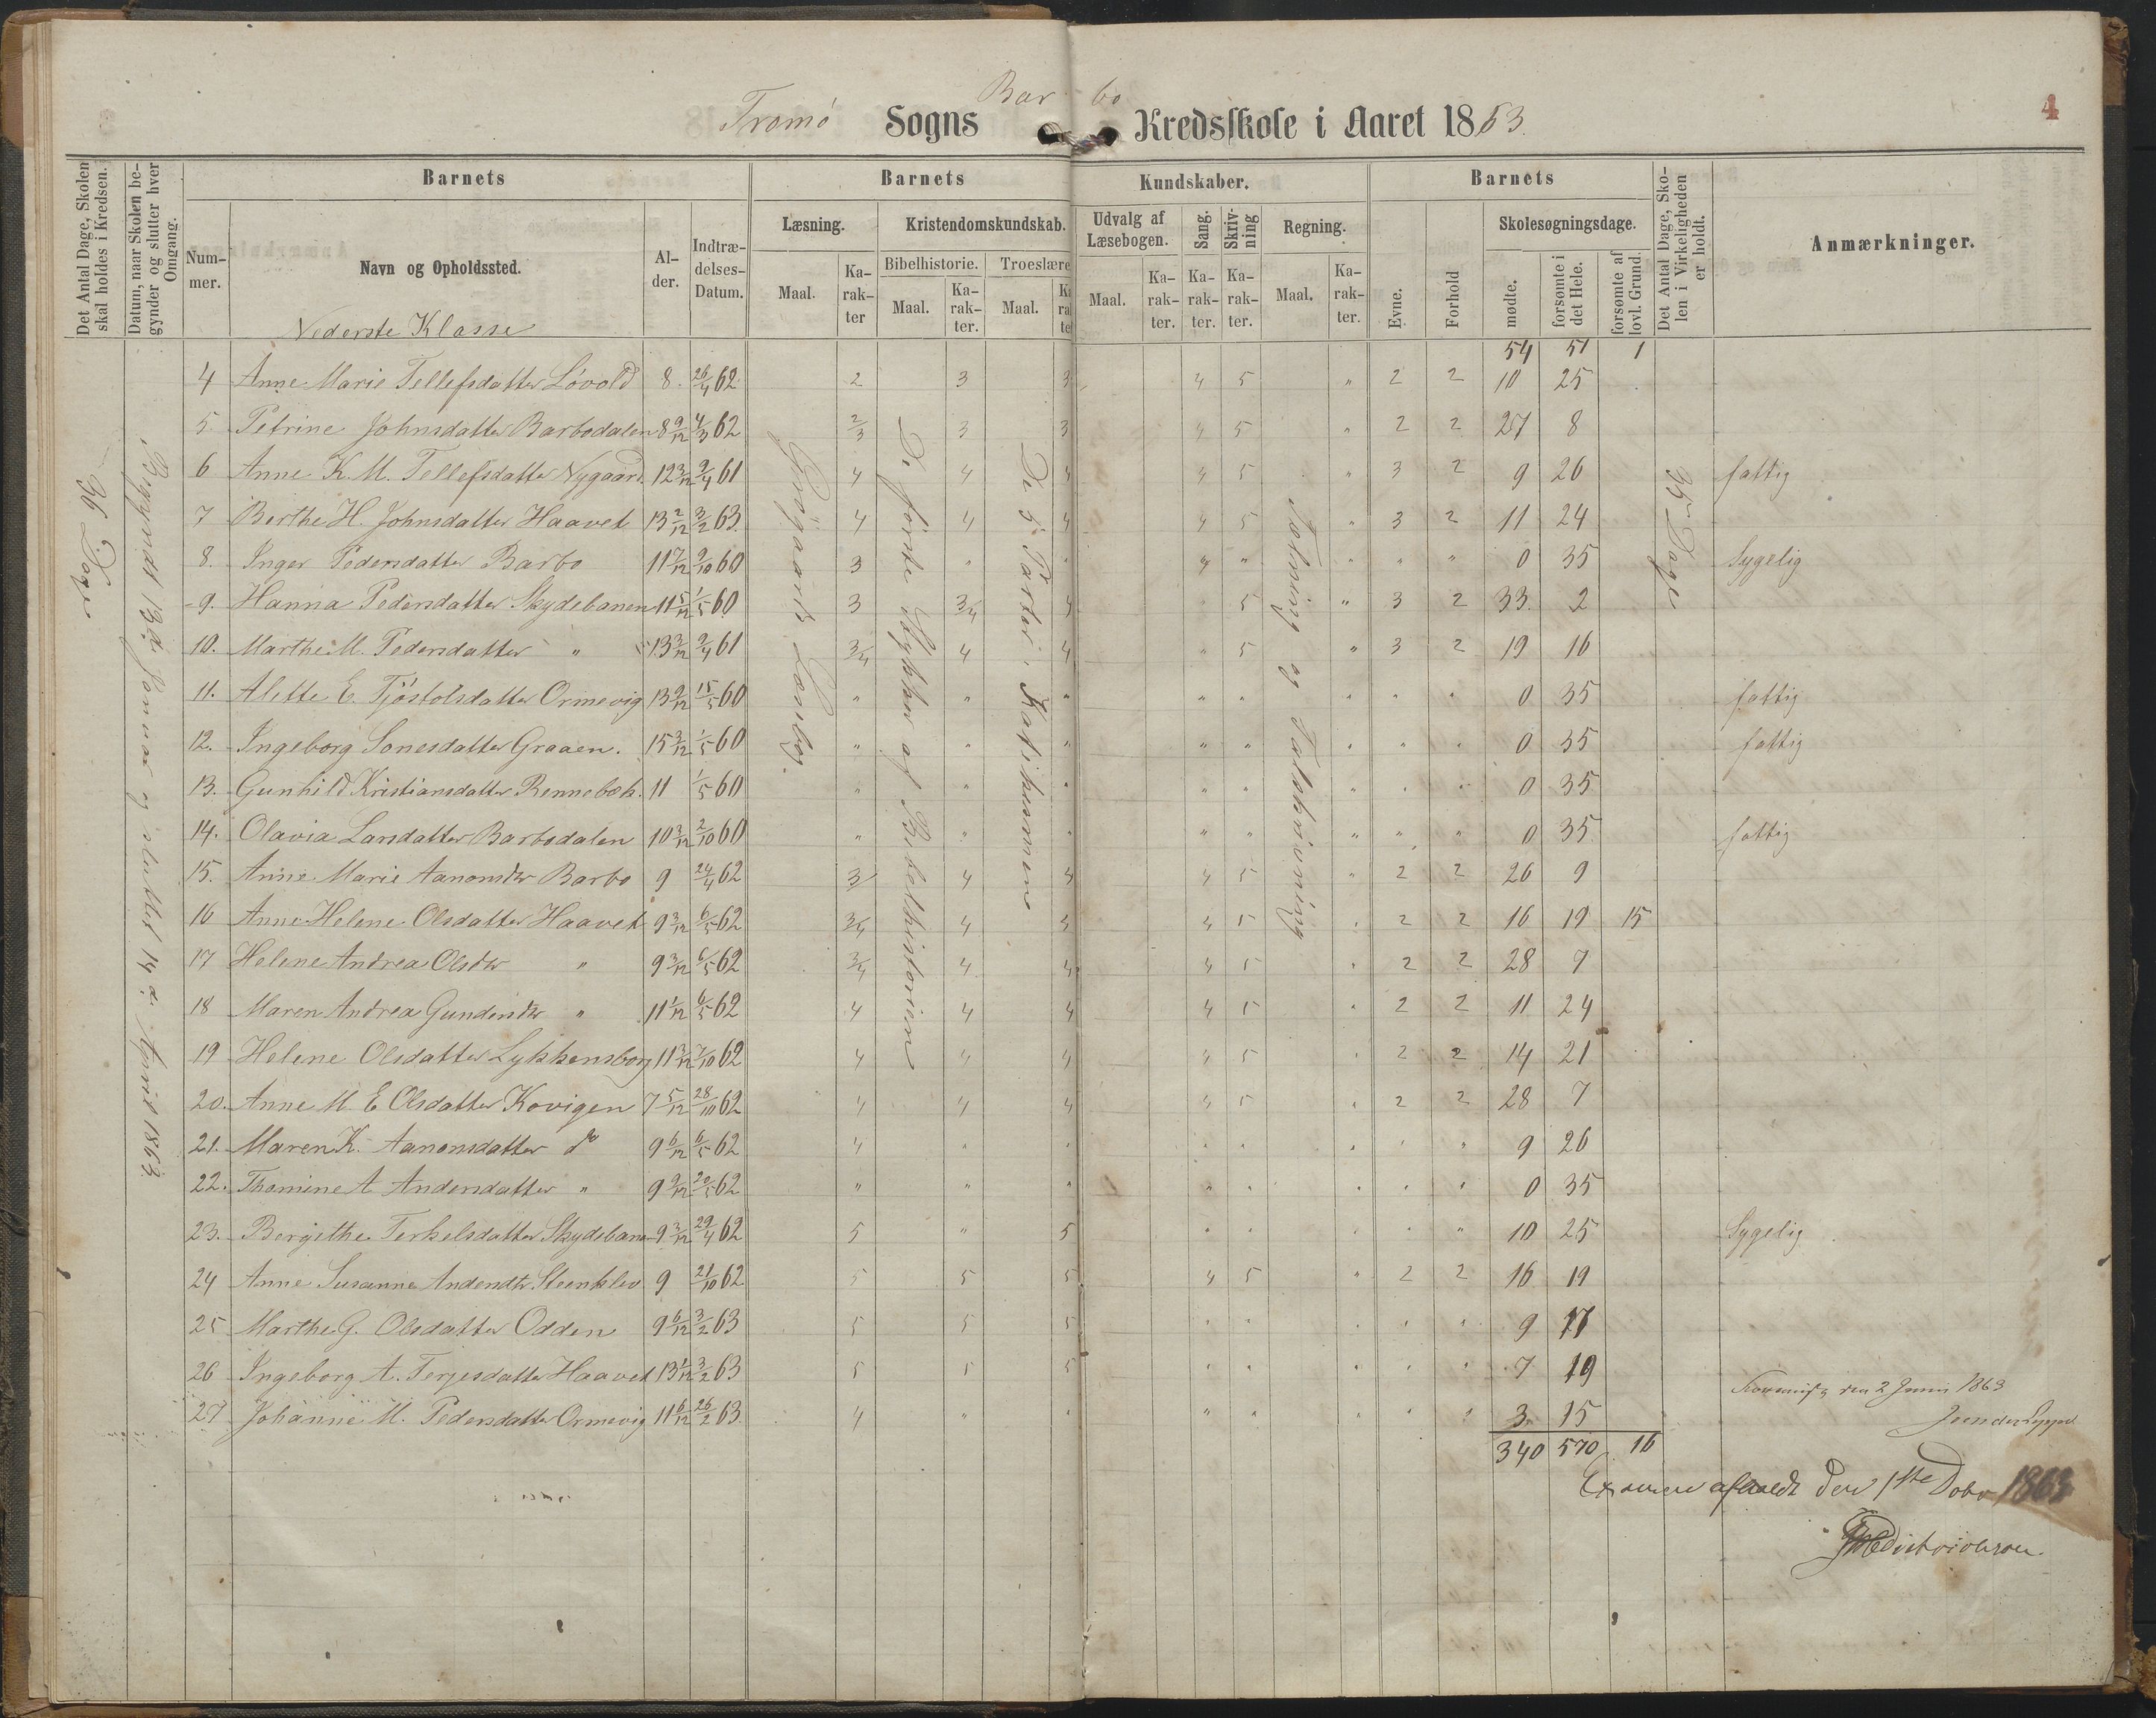 Tromø Sogns Barbo Kredsskole i Aaret 1863.
4
Det Antal Dage, Skolen skal holdes i Kredsen.
Datum, naar Skolen begynder og slutter hver Omgang.
Barnets
Nummer.
Navn og Opholdssted.
Alder.
Indtrædelses-Datum.
Barnets Kundskaber.
Læsning.
Maal.
Karakter
Kristendomskundskab.
Bibelhistorie.
Maal.
Karakter.
Troeslære
Maal.
Udvalg af Læsebogen.
Maal.
Karakter.
Sang.
Karakter.
Skrivning
Karakter.
Regning.
Maal.
Karakter.
Barnets
Evne.
Forhold
Skolesøgningsdage.
mødte.
forsømte i det Hele.
forsømte af lovl. Grund.
Det Antal Dage, Skolen i Virkeligheden er holdt.
Anmærkninger.
Nederste Klasse
54 51 1
4 Anne Marie Tellefsdatter Løvold 8 26/4 62 2 3 3 4 5 " 2 2 10 25
5. Petrine Johnsdatter Barbodalen 8 9/12 4/3 62 2/3 3 3 4 5 " 2 2 27 8
6 Anne K. M. Tellefsdatter Nygaard 12 3/12 9/4 61 4 4 4 4 5 " 3 2 9 26 fattig
7 Berthe H. Johnsdatter Haavet 13 2/12 3/2 63 4 4 4 4 5 " 3 2 11 24
8. Inger Pedersdatter Barbo 11 7/12 9/10 60 3 " " 4 " " " " 0 35 Sygelig
9. Hanna Pedersdatter Skydebanen 11 5/12 1/5 60 3 3/4 4 5 " 3 2 33 2
10. Marthe M. Pedersdatter " 13 3/12 9/4 61 3/4 4 4 " 5 " 3 2 19 16
11. Alette E. Tjøstolsdatter Ormevig 13 9/12 15/5 60 " " " " " " " " 0 35 fattig
12. Ingeborg Sonesdatter Graaen. 15 3/12 1/5 60 " " " " " " " " 0 35 fattig
13. Gunhild Kristiansdatter Rennebek. 11 1/5 60 " " " " " " " " 0 35
14. Olavia Larsdatter Barbodalen 10 3/12 2/10 60 " " " " " " " " 0 35 fattig
15. Anne Marie Aanonsdtr Barbo 9 24/4 62 3 4 4 4 5 " 2 2 26 9
16 Anne Helene Olsdatter Haavet 9 3/12 6/5 62 3/4 4 4 4 5 " 2 2 16 19 15
17 Helene Andrea Olsdtr " 9 3/12 6/5 62 3/4 4 4 4 5 " 2 2 28 7
18 Maren Andrea Gundersdtr " 11 1/12 6/5 62 4 4 4 4 5 " 2 2 11 24
19 Helene Olsdatter Lykkensborg 11 3/12 7/10 62 4 4 4 4 5 " 2 2 14 21
20. Anne M. E Olsdatter Kovigen 7 5/12 28/10 62 4 4 4 4 5 " 2 2 28 7
21. Maren K. Aanonsdatter do 9 6/12 6/5 62 4 " " " " " " " 9 26
22. Thomine A Andersdatter " 9 9/12 20/5 62 " " " " " " " " 0 35
23. Bergithe Terkelsdatter Skydebanen 9 3/12 29/4 62 5 " 5 " " " " 10 25 Sygelig
24 Anne Susanne Andersdtr. Steenklev 9 21/10 62 5 5 5 4 5 " 2 2 16 19
25 Marthe G. Olsdatter Odden 9 6/12 3/2 63 5 5 5 " " " " " 9 17
26 Ingeborg A. Terjesdatter Haavet 13 1/12 3/2 63 5 5 5 " " " " " 7 19
27 Johanne M. Pedersdatter Ormevig 11 6/12 26/2 63 4 " " " " " " " 3 15
340 570 16
36 Dage
Begyndt 13de Januar og sluttet 14de April 1863
Grögaards Læsebog.
De første Stykker af Bibelhistorien
De 5 Parter i Katekismen
Tælning og Talskrivning
35 Dage
den 2 Juni 1863
Examen afholdt den 1ste Dobr 1863